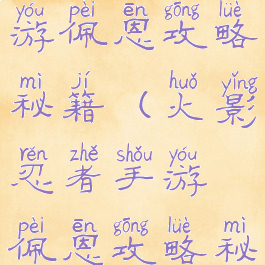 yóu pèi ēn gōng lüè
游佩恩攻略
mì jí huǒ yǐng
秘籍(火影
rěn zhě shǒu yóu
忍者手游
pèi ēn gōng lüè mì
佩恩攻略秘